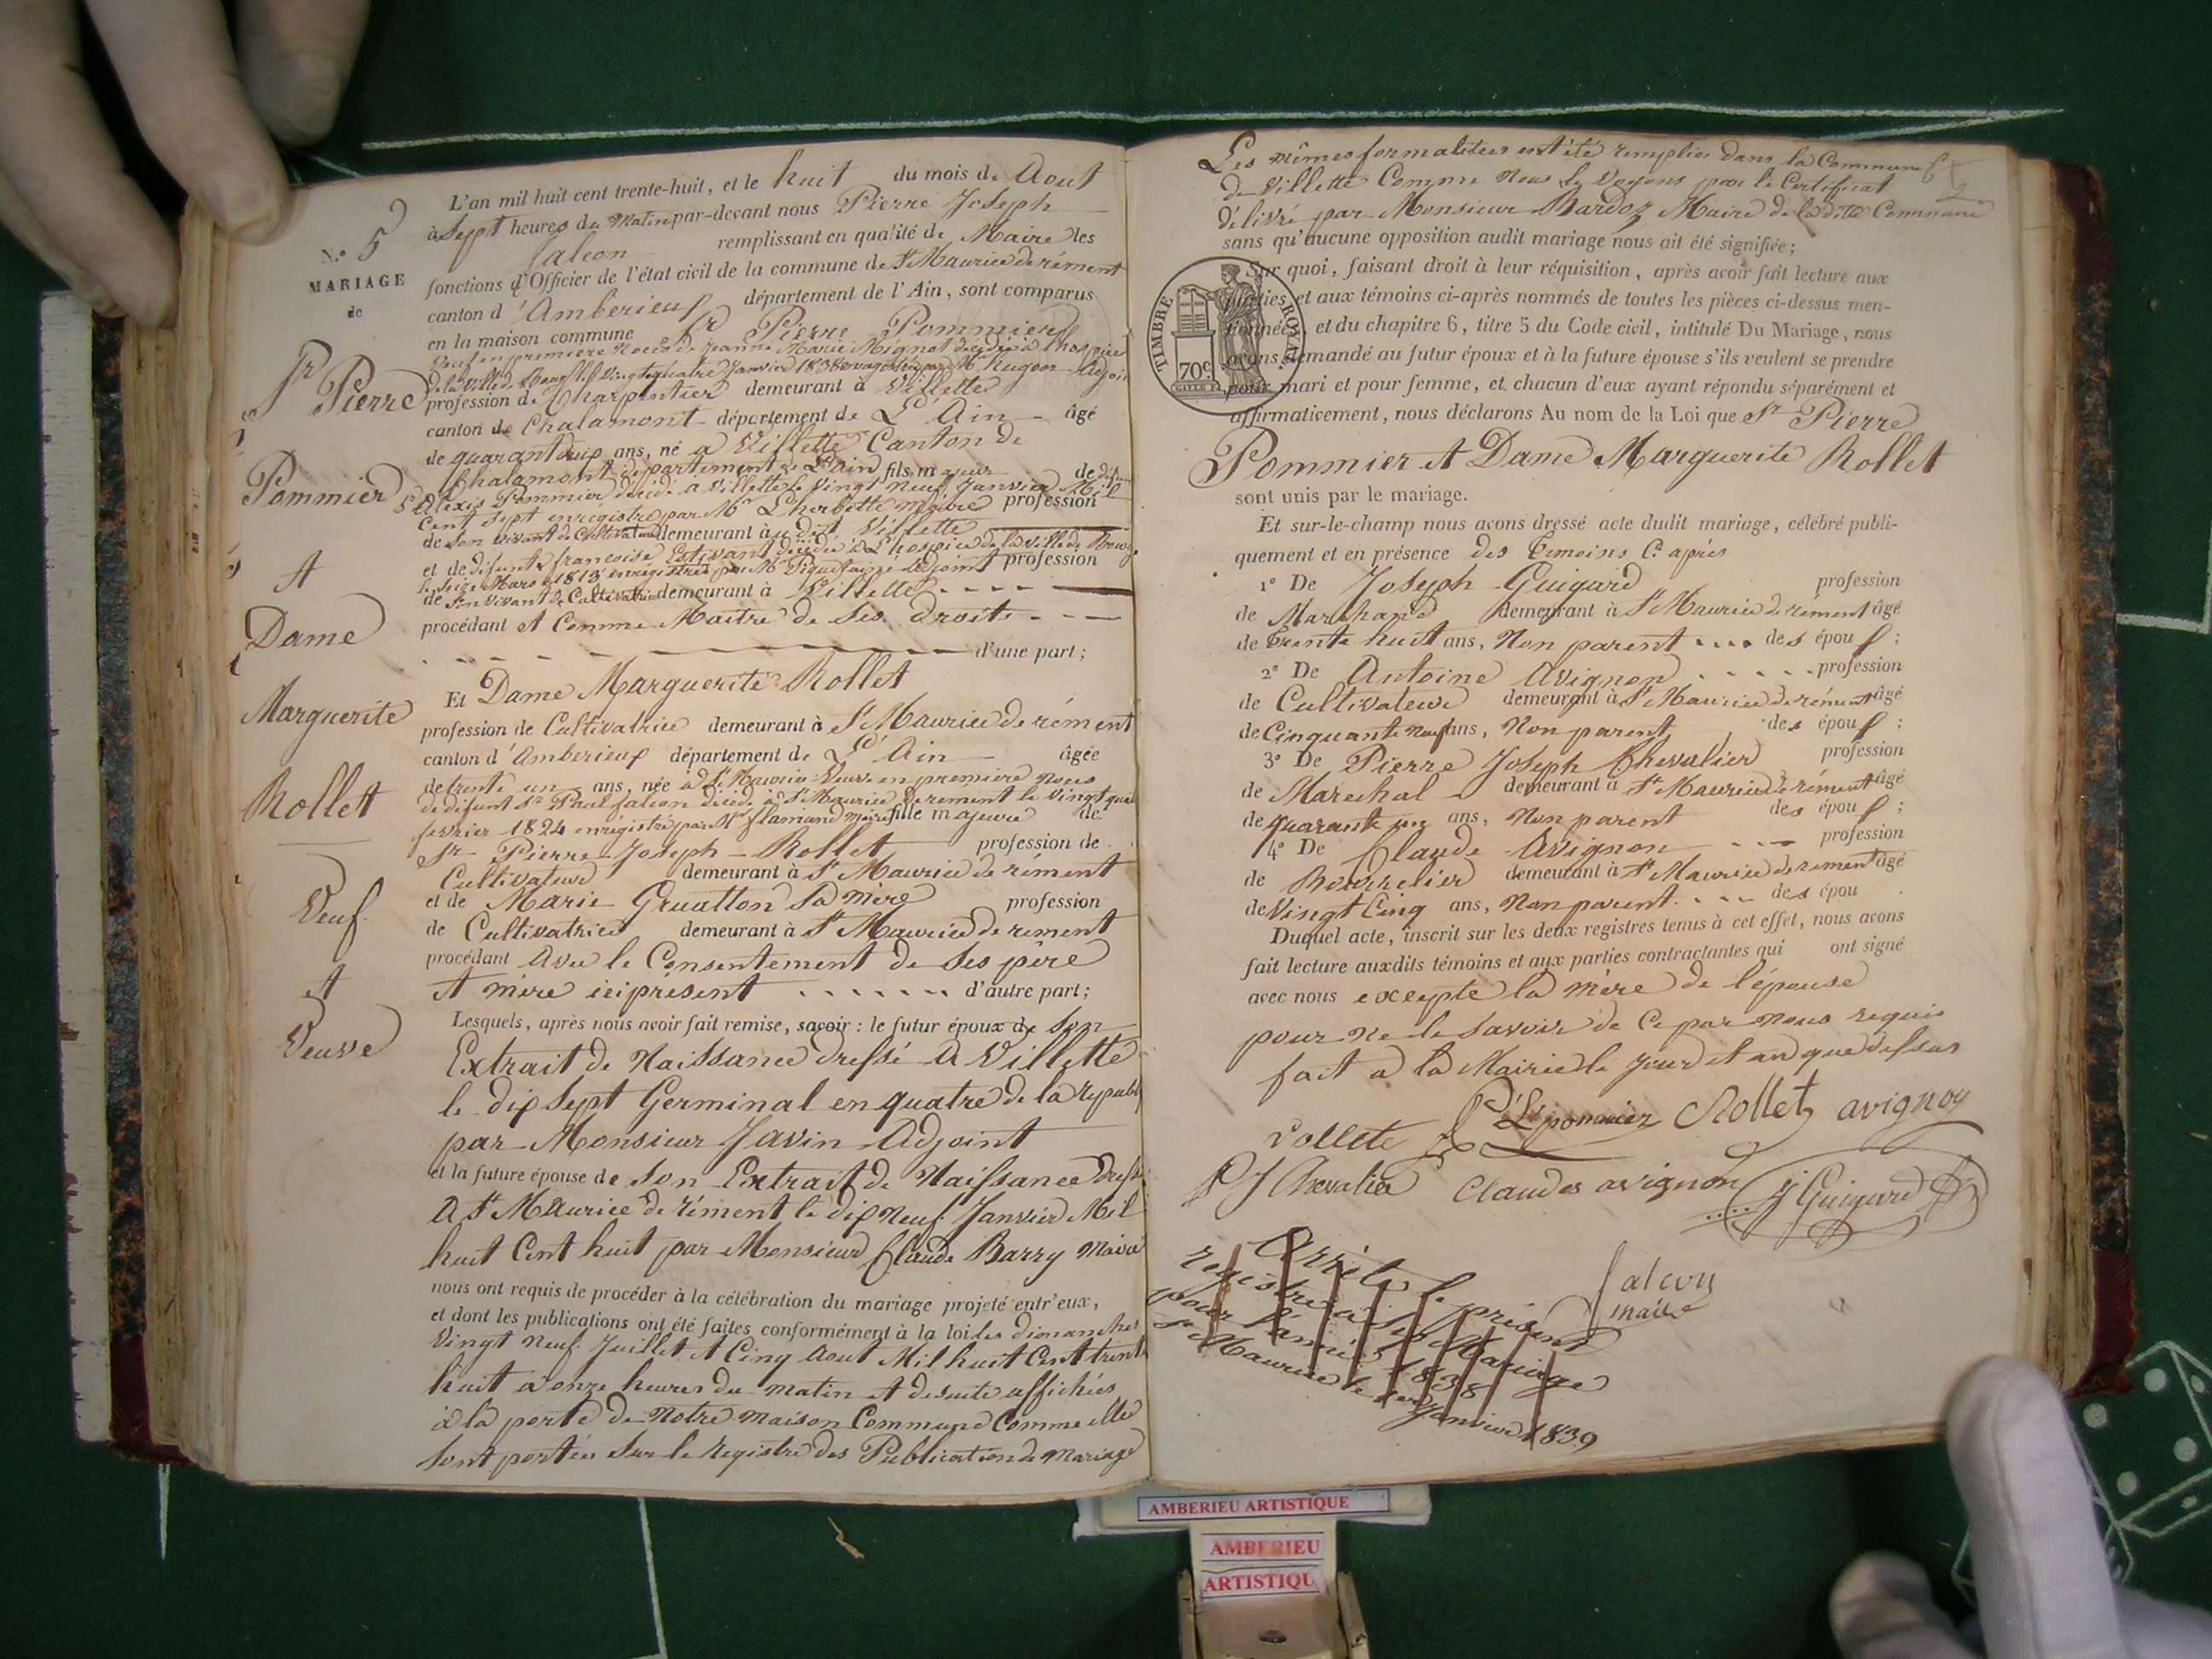 N.º 5
MARIAGE
de
Sr
Pierre
Pommier
et
Dame
Marguerite
Rollet
Veuf
et
Veuve
L'an mil huit cent trente-huit, et le huit du mois de Aout
à Sept heures du Matin par-devant nous Pierre Joseph
falcon remplissant en qualité de Maire les
fonctions d'Officier de l'état civil de la commune de St Maurice de rément
canton d'Ambérieux département de l'Ain, sont comparus
en la maison commune Sr Pierre Pommier
Veuf en première Noces de Jeanne Marie Mignot décédée à l'hospice
de la Ville de Bourg le Vingt quatre Janvier 1838 enregistré par Mr
profession de Charpentier demeurant à Villette
canton de Chalamont département de L'Ain âgé
de quarant deux ans, né a Villette Canton de
Chalamont département de L'Ain fils majeur de
St Alexis Pommier décédé a Villette le Vingt Neuf Janvier Mil
Cent Sept enrégistré par Mr L'herbette maire profession
de Son vivant de Cultivateur demeurant au dit Villette
et de difunte francoise Estivant décédée à L'hospice de la ville de Bourg
le Seize Mars 1813 enrégistrée par Mr adjoint profession
de Son Vivant de Cultivatrice demeurant à Villette
procédant et Comme Maitre de Ses Droits
d'une part;
Et Dame Marguerite Rollet
profession de Cultivatrice demeurant à St Maurice de rément
canton d'Amberieux département de L'Ain âgée
de trente un ans, née à dt St Maurice Veuve en première Noces
de difunt Sr Paul falcon décédé à St Maurice de rément le Vingt
fevrier 1824 enrégistré par Mr flamand maire fille majeure de
Sr Pierre Joseph Rollet profession de
Cultivateur demeurant à St Maurice de rément
et de Marie Gruatton Sa Mère profession
de Cultivatrice demeurant à St Maurice de rément
procédant avec le Consentement de Ses père
et mère ici présent d'autre part;
Lesquels, après nous avoir fait remise, savoir : le futur époux de Son
Extrait de Naissance dressé a Villette
le dix Sept Germinal en quatre de la republ
par Monsieur Javin Adjoint
et la future épouse de Son Extrait de Naissance dressé
a St Maurice de rément le dix Neuf Janvier Mil
huit Cent huit par Monsieur Claude Barry Maire
nous ont requis de procéder à la célébration du mariage projeté entr'eux,
et dont les publications ont été faites conformément à la loi les dimanches
Vingt Neuf Juillet et Cinq Aout Mil huit Cent trente
huit à onze heures du matin et desuite affichées
à la porte de Notre maison Commune Comme elle
Sont portées Sur le Registre des Publications de Mariage
Les mêmes formalitées ont été remplies dans la Commune
de Villette Comme Nous le Voyons par le Certificat
délivré par Monsieur Bardoz Maire de la dite Commune
sans qu'aucune opposition audit mariage nous ait été signifiée;
Sur quoi, faisant droit à leur réquisition, après avoir fait lecture aux
parties et aux témoins ci-après nommés de toutes les pièces ci-dessus men-
tionnées, et du chapitre 6, titre 5 du Code civil, intitulé Du Mariage, nous
avons demandé au futur époux et à la future épouse s'ils veulent se prendre
pour mari et pour femme, et chacun d'eux ayant répondu séparément et
affirmativement, nous déclarons Au nom de la Loi que Sr Pierre
Pommier et Dame Marguerite Rollet
sont unis par le mariage.
TIMBRE ROYAL
70c.
Et sur-le-champ nous avons dressé acte dudit mariage, célébré publi-
quement et en présence des Temoins Ci après
1º De Joseph Guigard profession
de Marchand demeurant à St Maurice de rément âgé
de Trente huit ans, Non parent des époux;
2º De Antoine Avignon profession
de Cultivateur demeurant à St Maurice de rément âgé
de Cinquante Neuf ans, Non parent des époux;
3º De Pierre Joseph Chevalier profession
de Marechal demeurant à St Maurice de rément âgé
de quarante un ans, Non parent des époux;
4º De Claude Avignon profession
de Bourrelier demeurant à St Maurice de rément âgé
de Vingt Cinq ans, Non parent des épou
Duquel acte, inscrit sur les deux registres tenus à cet effet, nous avons
fait lecture auxdits témoins et aux parties contractantes qui ont signé
avec nous excepte la mère de l'épouse
pour ne le Savoir de Ce par nous requis
fait a la Mairie le jour et an que dessus
pommier Rollet avignon
rollete
P J Chevalier Claudes avignon J Guigard
falcon
maire
Arrêté le présent
registre des Mariage
pour l'année 1838
St Maurice le Janvier 1839
AMBERIEU ARTISTIQUE
AMBERIEU
ARTISTIQU